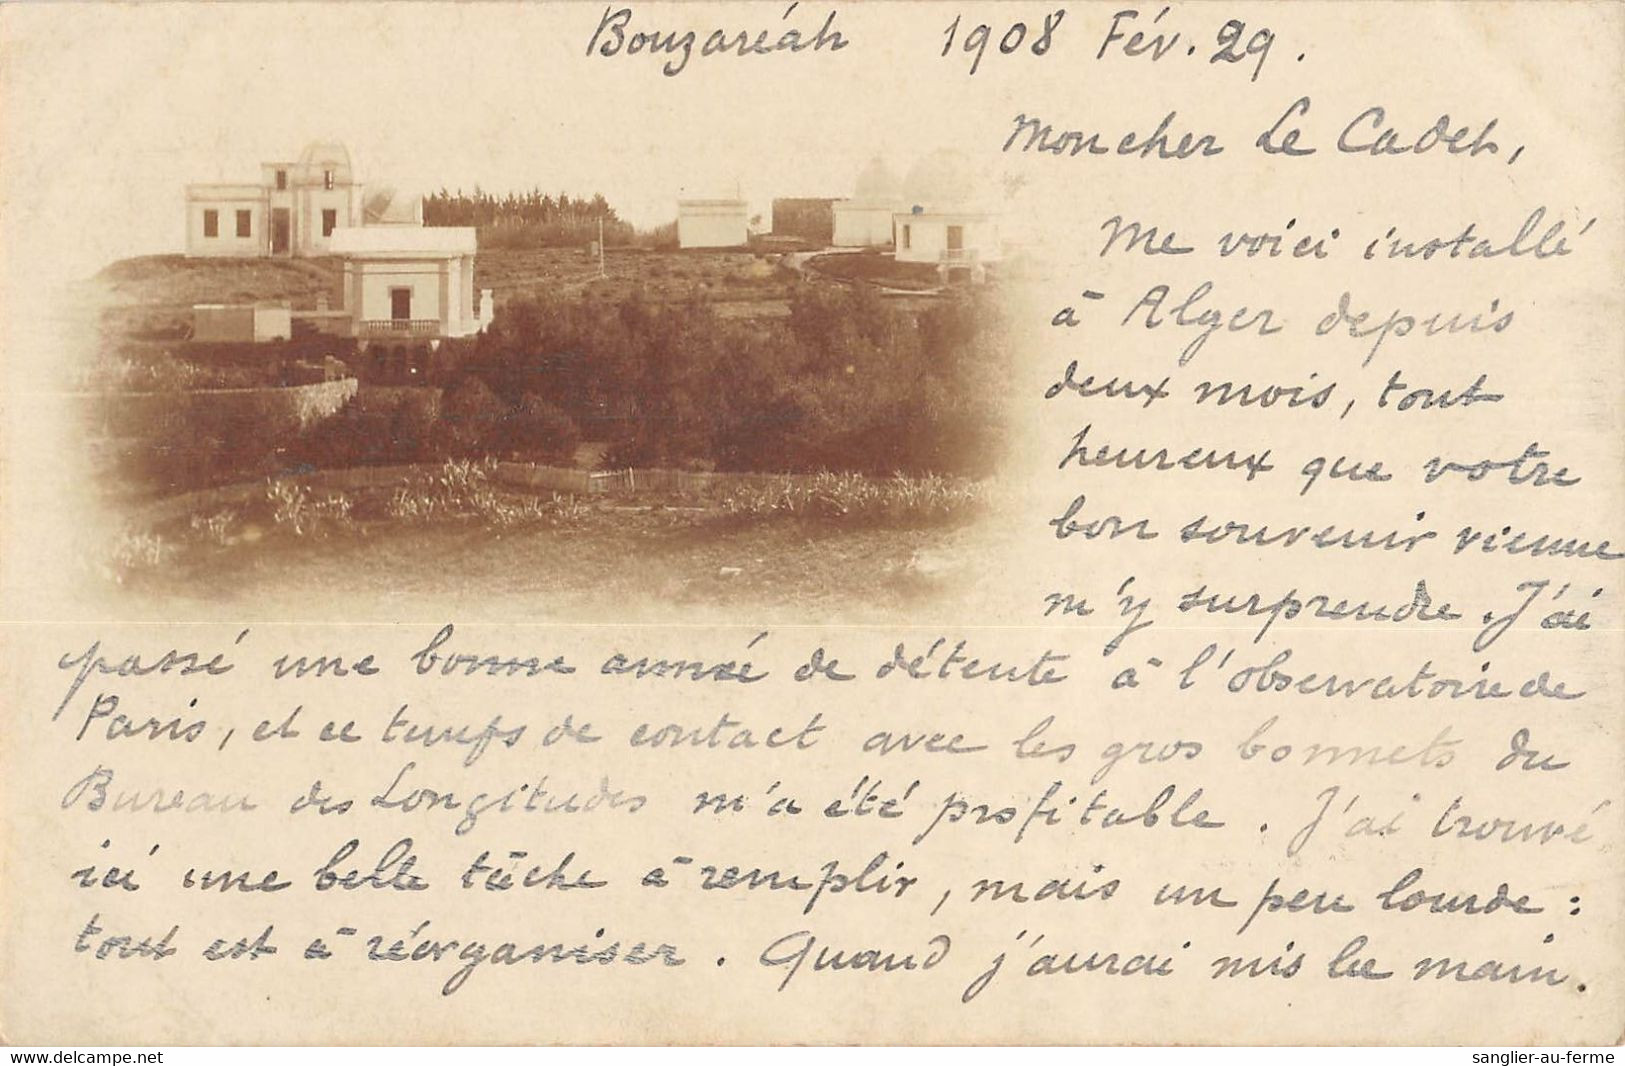 Bouzaréah 1908 Fév. 29.
Mon cher Le Cadet,
Me voici installé
à Alger depuis
deux mois, tout
heureux que votre
bon souvenir vienne
m'y surprendre. J'ai
passé une bonne année de détente à l'observatoire de
Paris, et ce temps de contact avec les gros bonnets du
Bureau des Longitudes m'a été profitable. J'ai trouvé
ici une belle tâche à remplir, mais un peu lourde :
tout est à réorganiser. Quand j'aurai mis la main.
www.delcampe.net
sanglier-au-ferme